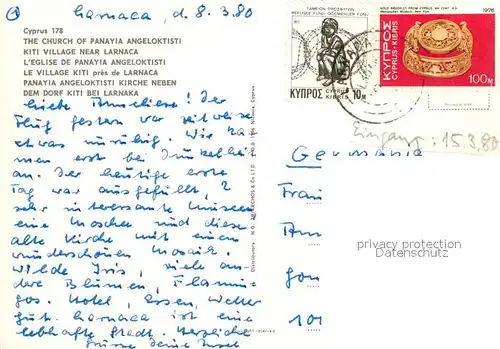 Larnaca, d. 8.3.80
Cyprus 178
THE CHURCH OF PANAYIA ANGELOKTISTI
KITI VILLAGE NEAR LARNACA
L'EGLISE DE PANAYIA ANGELOKTISTI
LE VILLAGE KITI près de LARNACA
PANAYIA ANGELOKTISTI KIRCHE NEBEN
DEM DORF KITI BEI LARNAKA
Liebe Anneliese! Der
Flug gestern war zeitweise
etwas unruhig. Wir ka-
men erst bei Dunkelheit
an. Der heutige erste
Tag war ausgefüllt, 2
sehr interessante Museen
eine Moschee und diese
alte Kirche mit einem
wunderschönen Mosaik.
Wilde Iris, viele an-
dere Blumen, Flamin-
gos. Hotel, Essen, Wetter
gut. Larnaca ist eine
lebhafte Stadt. Herzliche
Grüsse Deine
Distributors: N.G.
Cyprus
right reserved
ΤΑΜΕΙΟΝ ΠΡΟΣΦΥΓΩΝ
REFUGEE FUND GÖÇMENLER FONU
ΚΥΠΡΟΣ
CYPRUS
KIBRIS
10 M
GOLD BRACELET FROM CYPRUS
Metropolitan Museum, New York
1976
ΚΥΠΡΟΣ
CYPRUS-KIBRIS
100M
Eingang: 15.3.80
Germania
Frau
protected copyright
Datenschutz